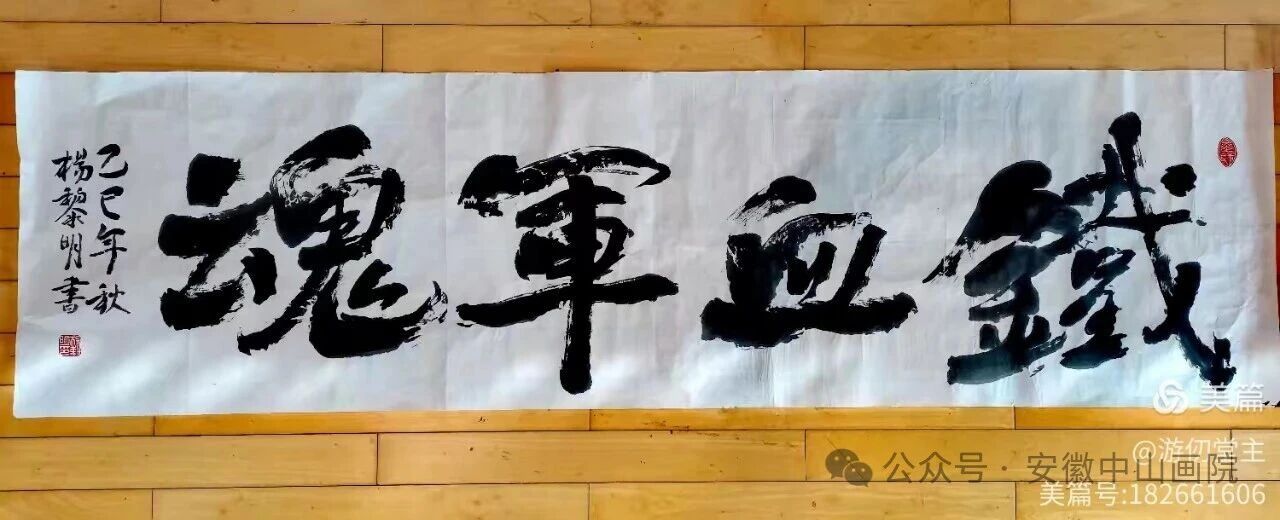 鐵血軍魂
乙巳年秋
楊黎明書
美篇
@游仞堂主
公众号·安徽中山画院
美篇号:182661606